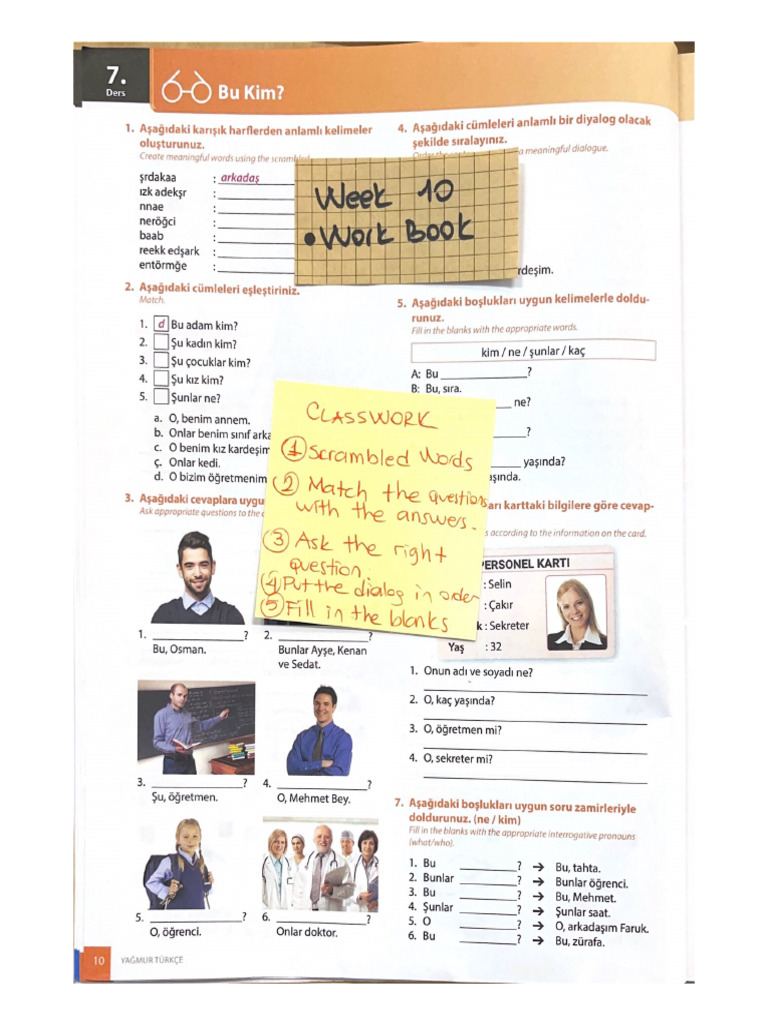 7.
Ders
Bu Kim?
1. Aşağıdaki karışık harflerden anlamlı kelimeler
oluşturunuz.
Create meaningful words using the scrambled
şrdakaa : arkadaş
ızk adekşr :
nnae :
neröğci :
baab :
reekk edşark :
entörmğe :
2. Aşağıdaki cümleleri eşleştiriniz.
Match.
1. d Bu adam kim?
2. Şu kadın kim?
3. Şu çocuklar kim?
4. Şu kız kim?
5. Şunlar ne?
a. O, benim annem.
b. Onlar benim sınıf arka
c. O benim kız kardeşim
ç. Onlar kedi.
d. O bizim öğretmenim
3. Aşağıdaki cevaplara uygu
Ask appropriate questions to the
1. ?
Bu, Osman.
2. ?
Bunlar Ayşe, Kenan
ve Sedat.
3. ?
Şu, öğretmen.
4. ?
O, Mehmet Bey.
5. ?
O, öğrenci.
6. ?
Onlar doktor.
10 YAĞMUR TÜRKÇE
4. Aşağıdaki cümleleri anlamlı bir diyalog olacak
şekilde sıralayınız.
a meaningful dialogue.
rdeşim.
Week 10
• Work Book
5. Aşağıdaki boşlukları uygun kelimelerle doldu-
runuz.
Fill in the blanks with the appropriate words.
kim / ne / şunlar / kaç
A: Bu ?
B: Bu, sıra.
ne?
?
yaşında?
aşında.
CLASSWORK
1 Scrambled Words
2 Match the questions
with the answers.
3 Ask the right
question
4 Put the dialog in order
5 Fill in the blanks
arı karttaki bilgilere göre cevap-
s according to the information on the card.
PERSONEL KARTI
: Selin
: Çakır
k : Sekreter
Yaş : 32
1. Onun adı ve soyadı ne?
2. O, kaç yaşında?
3. O, öğretmen mi?
4. O, sekreter mi?
7. Aşağıdaki boşlukları uygun soru zamirleriyle
doldurunuz. (ne / kim)
Fill in the blanks with the appropriate interrogative pronouns
(what/who).
1. Bu ? → Bu, tahta.
2. Bunlar ? → Bunlar öğrenci.
3. Bu ? → Bu, Mehmet.
4. Şunlar ? → Şunlar saat.
5. O ? → O, arkadaşım Faruk.
6. Bu ? → Bu, zürafa.